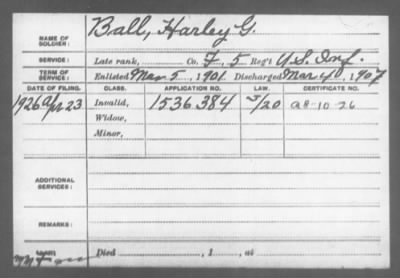 NAME OF SOLDIER: Ball, Harley G.
SERVICE: Late rank, Co. F, 5 Reg't U.S. Inf.
TERM OF SERVICE: Enlisted Mar 5, 1901. Discharged Mar 4, 1907
DATE OF FILING. CLASS. APPLICATION NO. LAW. CERTIFICATE NO.
1926 Apr 23 Invalid, 1536384 5/20 a8-10-26
Widow,
Minor,
ADDITIONAL SERVICES:
REMARKS:
Died , 1 , at